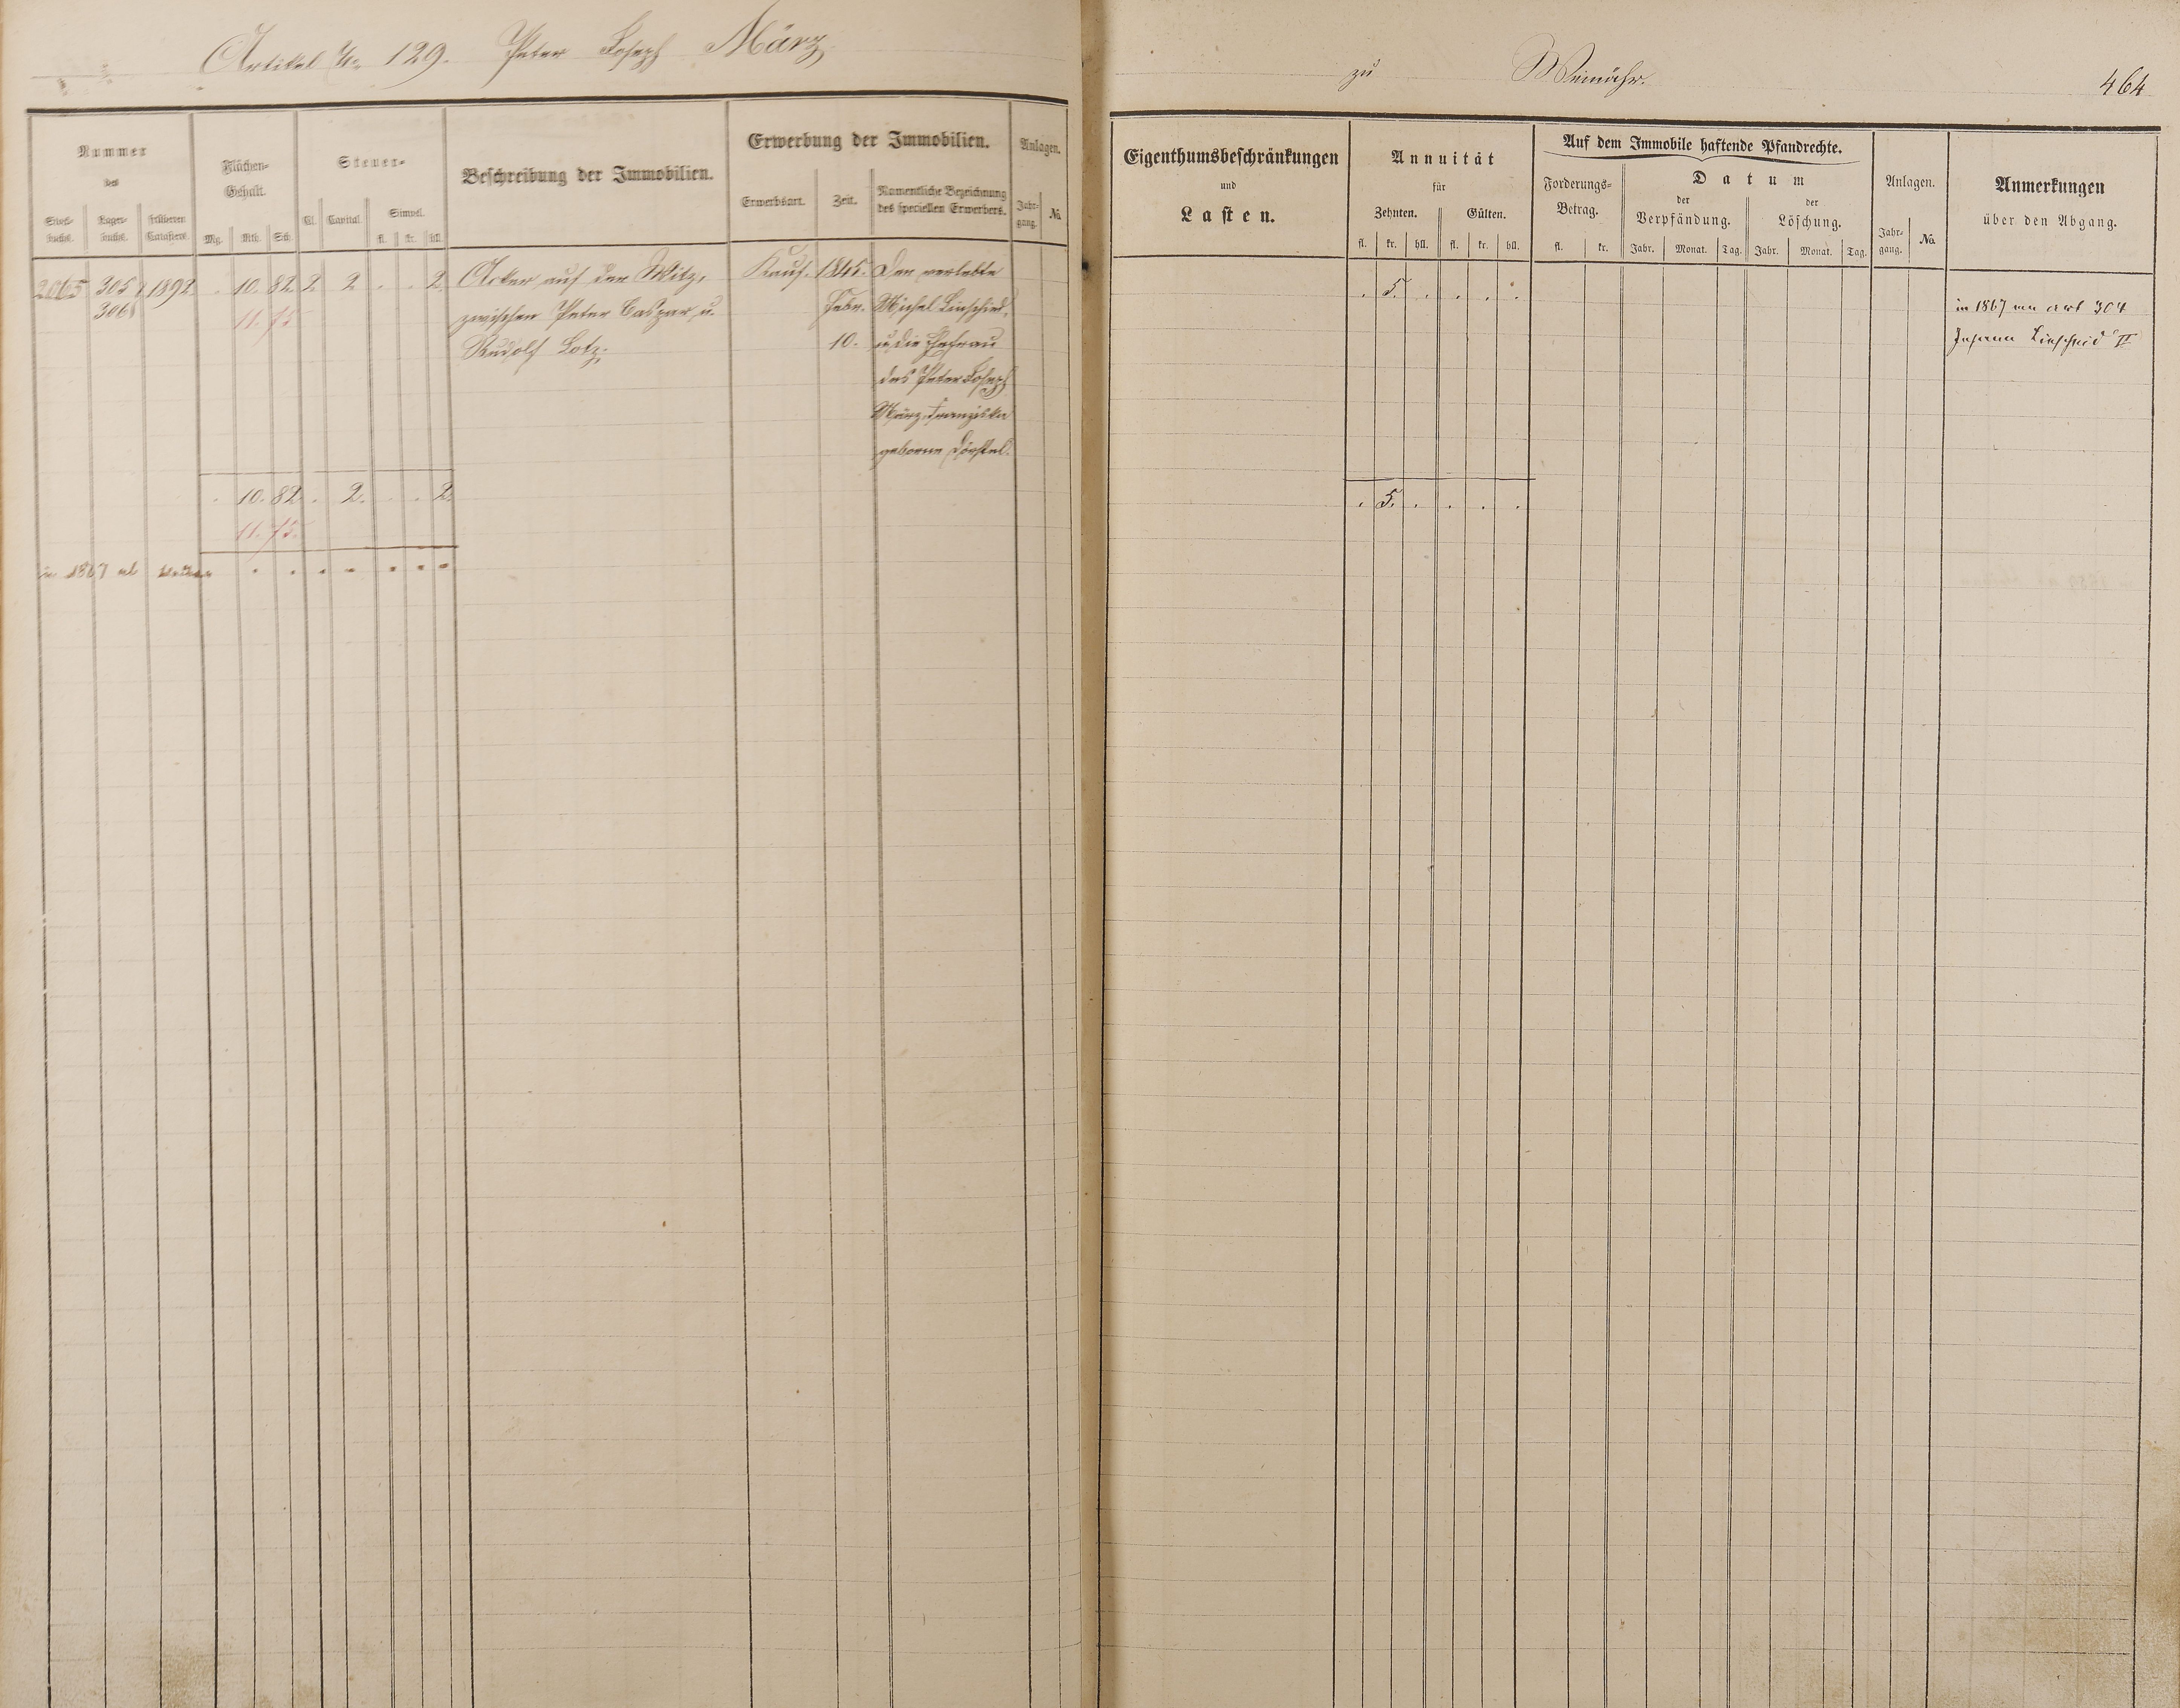 Artikel No 129. Peter Joseph März,
Nummer
des
Stock-
buchs.
Lager-
buchs.
früheren
Catasters.
Flächen-
Gehalt.
Mg. Rth. Sch.
Steuer-
Cl. Capital. Simpel.
fl. kr. hll.
Beschreibung der Immobilien.
Erwerbung der Immobilien.
Erwerbsart. Zeit.
Namentliche Bezeichnung
des speciellen Erwerbers.
Anlagen.
Jahr-
gang. No.
2065 305 1892 . 10. 82. 2 2 . . 2. Acker auf der Witz, Kauf. 1845. Der verlebte
306 11. 75 zwischen Peter Caspar u. Febr. Michel Linscheid,
Rudolf Lotz; 10. u. die Ehefrau
des Peter Joseph
März, Franziska
geborne
. 10. 82. . 2. . . 2.
11. 75.
in 1867 . . . - . . -
zu Weinähr. 464
Eigenthumsbeschränkungen
und
Lasten.
Annuität
für
Zehnten. Gülten.
fl. kr. hll. fl. kr. hll.
Auf dem Immobile haftende Pfandrechte.
Forderungs-
Betrag.
fl. kr.
Datum
der
Verpfändung.
Jahr. Monat. Tag.
der
Löschung.
Jahr. Monat. Tag.
Anlagen.
Jahr-
gang. No.
Anmerkungen
über den Abgang.
. 5. . . . .
in 1867 an art 304
Johann Linscheid II
. 5. . . . .